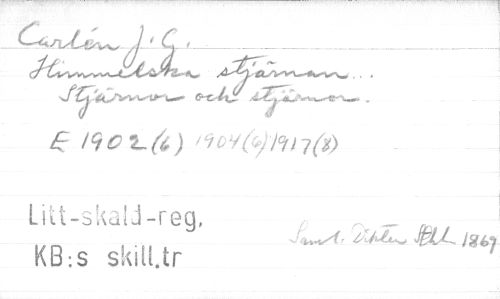 Carlén J. G.
Himmelska stjärnan...
Stjärnor och stjärnor.
E 1902 (6) 1904 (6) 1917 (8)
Litt-skald-reg,
Saml. Dikter Sthlm 1869
KB:s skill.tr